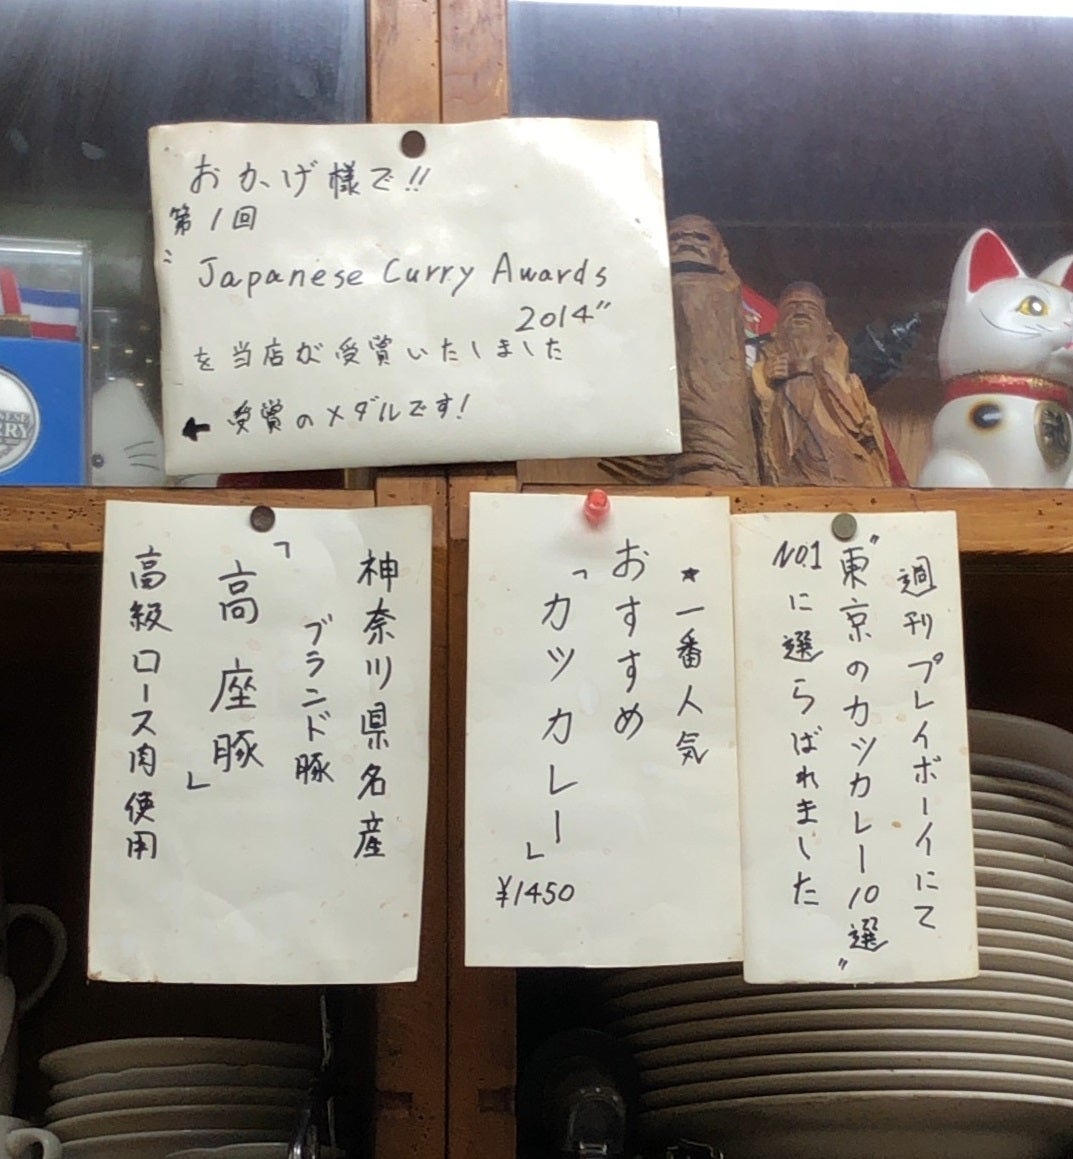 おかげ様で!!
第1回
"Japanese Curry Awards
2014"
を当店が受賞いたしました
← 受賞のメダルです!
神奈川県名産
ブランド豚
「高座豚」
高級ロース肉使用
★一番人気
おすすめ
「カツカレー」
¥1450
週刊プレイボーイにて
"東京のカツカレー10選"
NO.1に選らばれました